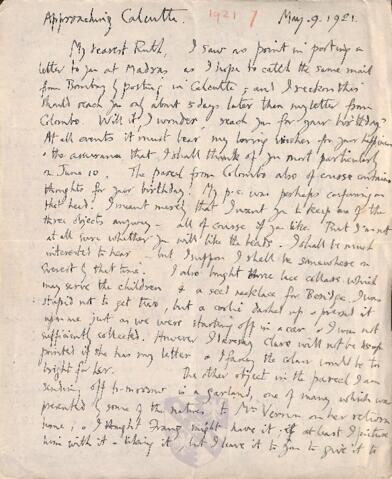 Approaching Calcutta. 1921 7 May. 9. 1921.
My dearest Ruth, I saw no point in posting a
letter to you at Madras as I hope to catch the same mail
from Bombay by posting in Calcutta; and I reckon this
should reach you only about 5 days later than my letter from
Colombo. Will it, I wonder, reach you for your birthday?
At all events it must bear my loving wishes for your happiness
& the assurance that I shall think of you most particularly
on June 10. The parcel from Colombo also of course contains
thoughts for your birthday. My p.c. was perhaps confusing on
that head. I meant merely that I want you to keep one of the
three objects anyway – all of course if you like. But I'm not
at all sure whether you will like the beads. I shall be much
interested to hear – but I suppose I shall be somewhere on
Everest by that time. I also bought three lace collars which
may serve the children & a seed necklace for Benidge. I was
stupid not to get two, but a coolie dashed up & pressed it
upon me just as we were starting off in a car & I was not
sufficiently collected. However I
of the my letter & I fancy the colour would be too
bright for her. The other object in the parcel I am
sending off to-morrow is a garland, one of many which were
presented by some of the natives to Mr Vernon on her return
home; & I thought might have it, at least I picture
him with it – liking it, but I leave it to you to give it to